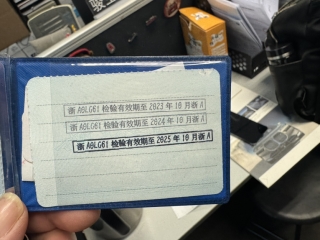 浙 A6LG61 检验有效期至 2023 年 10 月浙 A
浙 A6LG61 检验有效期至 2024 年 10 月浙 A
浙 A6LG61 检验有效期至 2025 年 10 月浙 A